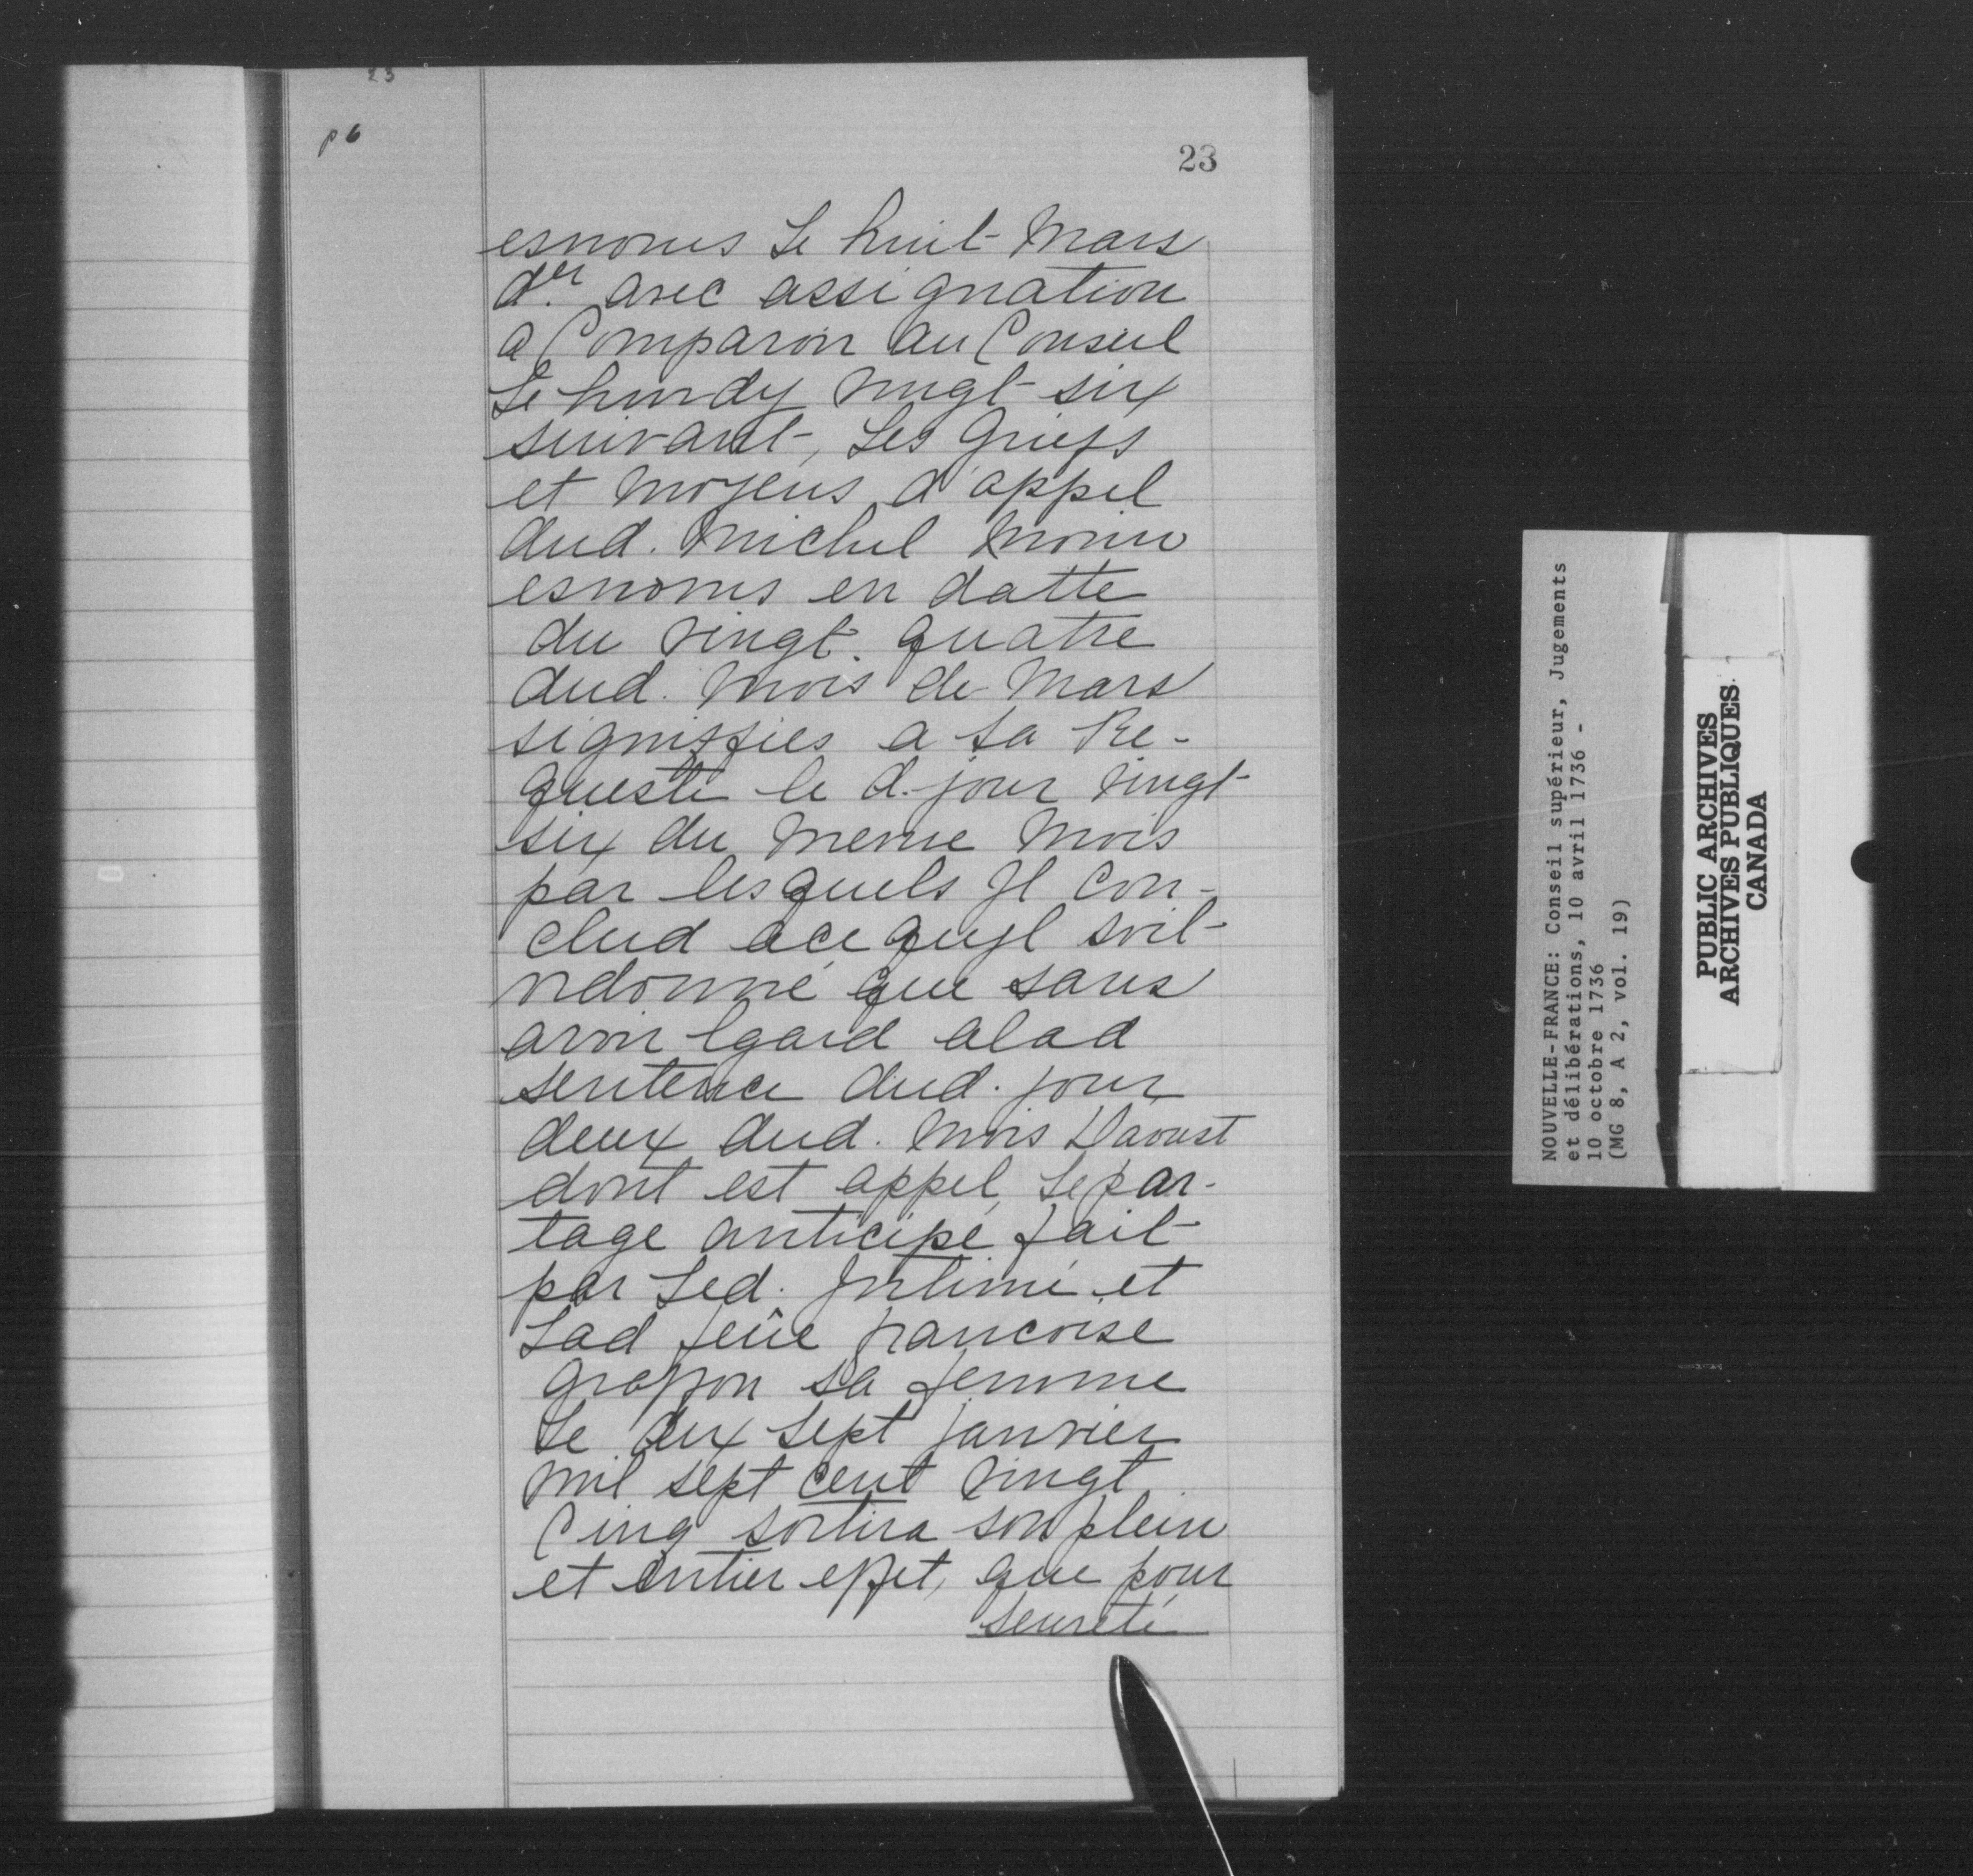 23
p 6
23
esnoms Le huit Mars
d.er avec assignation
a Comparoir au Conseil
Le Lundy vingt six
suivant, Les Griefs
et moyens d'appel
dud. Michel Morin
esnoms en datte
du vingt quatre
dud. mois de Mars
signiffiés a sa Re-
queste le d. jour vingt
six du meme mois
par lesquels Jl con-
clud ace quyl soit
ordonné que sans
avoir Egard alad
sentence dud. jour
deux dud. mois Daoust
dont est appel, Le par-
tage anticipé fait
par Led. Jntimé et
Lad feüe francoise
Graffon sa femme
Le dix sept janvier
mil sept cent vingt
Cinq sortira son plein
et entier effet, que pour
seureté
NOUVELLE-FRANCE: Conseil supérieur, Jugements
et délibérations, 10 avril 1736 -
10 octobre 1736
(MG 8, A 2, vol. 19)
PUBLIC ARCHIVES
ARCHIVES PUBLIQUES
CANADA